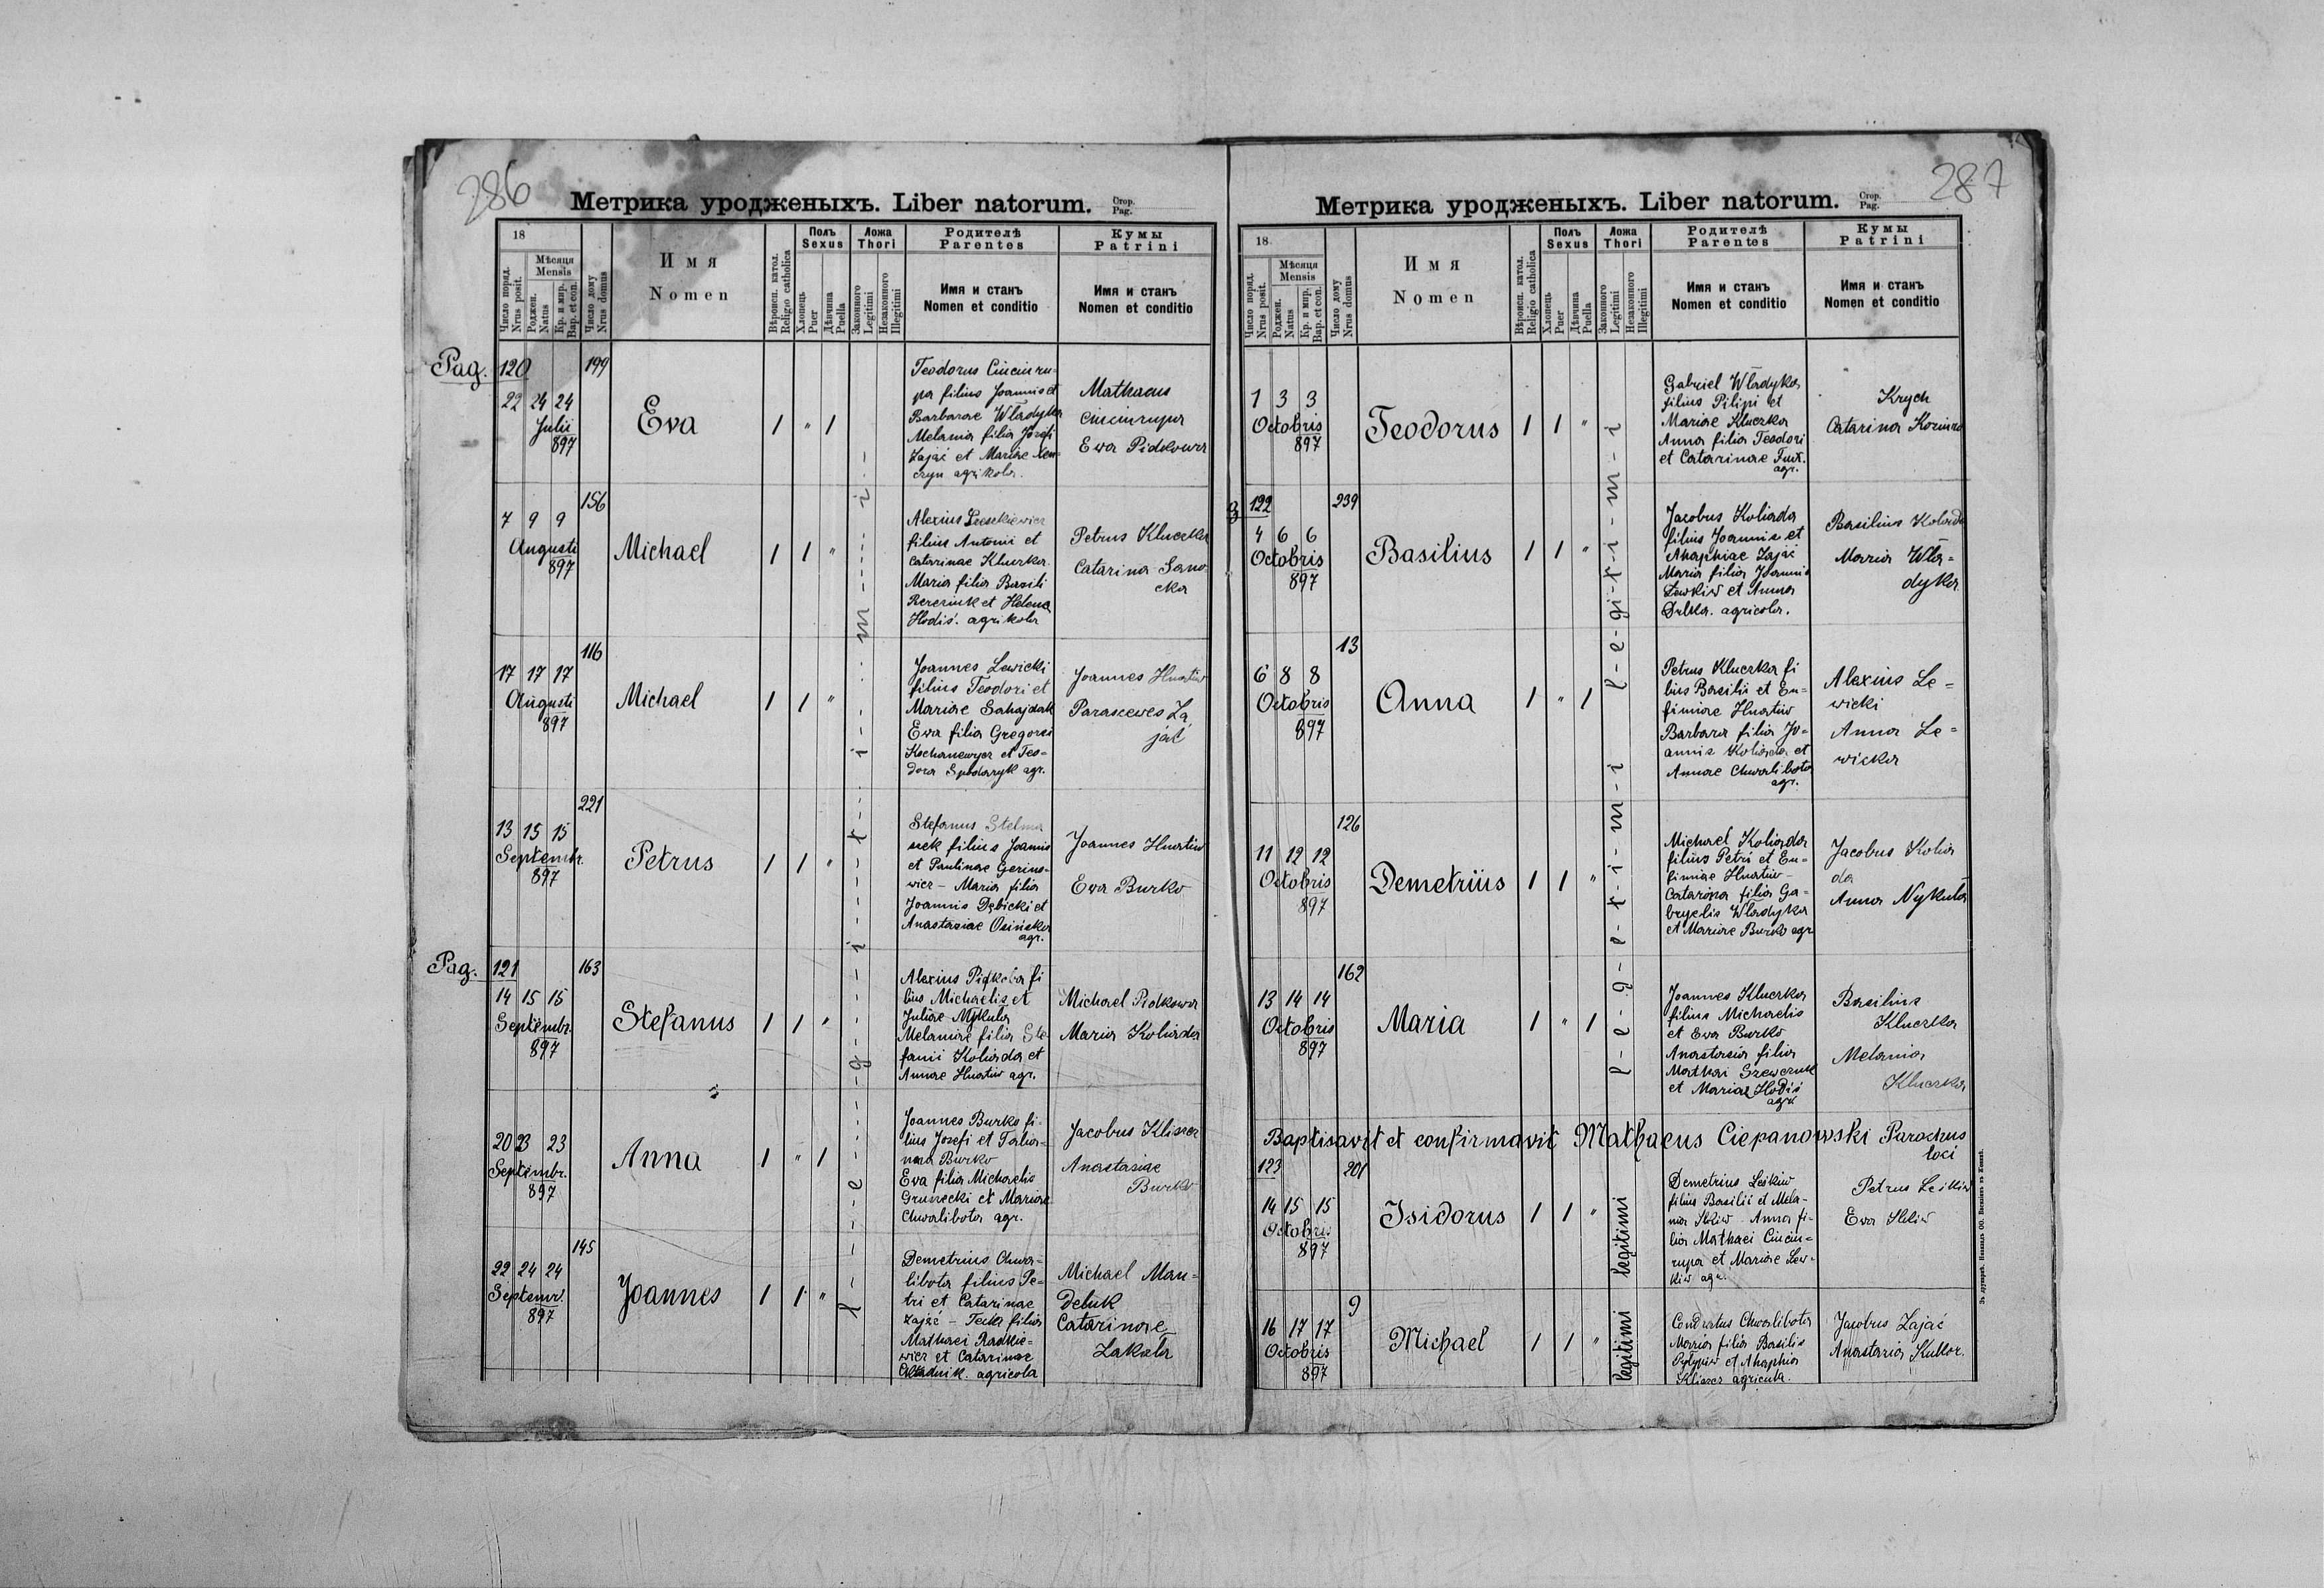 286
Метрика уродженыхъ. Liber natorum. Стор. Pag.
18
Число поряд. Nrus posit.
Мѣсяця Mensis
Роджен. Natus
Кр. и мир. Bap. et con.
Число дому Nrus domus
Имя
Nomen
Вѣроисп. катол. Religio catholica
Полъ Sexus
Хлопець Puer
Дѣвчина Puella
Ложа Thori
Законного Legitimi
Незаконного Illegitimi
Родителѣ Parentes
Имя и станъ
Nomen et conditio
Кумы Patrini
Имя и станъ
Nomen et conditio
l - e - g - i - t - i - m - i
Pag. 120 199
22 24 24
Julii
897
Eva
1 " 1
Teodorus Ciuciuru-
pa filius Joannis et
Barbarae Wladyka
Melania filia Josefi
Zając et Mariae
agrikola.
Mathaeus
Ciuciurupa
Ewa Pidkowa
156
7 9 9
Augusti
897
Michael
1 1 "
Alexius
filius Antonii et
Catarinae Kluczka
Maria filia Basili
et Helena
Hodiś. agrikola
Petrus Kluczka
Catarina Sano
cka
116
17 17 17
Augusti
897
Michael
1 1 "
Joannes Lewicki
filius Teodori et
Mariae Sahajdak
Ewa filia Gregorei
et Teo-
dora Spodaryk agr.
Joannes Hnatiw
Parascewes Za
jać
221
13 15 15
Septembr.
897
Petrus
1 1 "
Stefanus Stelma
szek filius Joannis
et Paulinae Gerino-
wicz - Maria filia
Joannis Dębicki et
Anastasiae Osińska
agr.
Joannes Hnatiw
Ewa Burko
Pag. 121 163
14 15 15
Septembr.
897
Stefanus
1 1 "
Alexius Pidkowa fi
lius Michaelis et
Juliae Mykula
Melaniae filia Ste
fanii Koliada et
Annae Hnatiw agr.
Michael Pidkowa
Maria Koliada
20 23 23
Septembr.
897
Anna
1 " 1
Joannes Burko fi-
lius Josefi et Tatia-
nna Burko
Eva filia Michaelis
Gruszecki et Mariae
Chwalibota agr.
Jacobus Klisza
Anastasiae
Burko
145
22 24 24
Septemr.
897
Joannes
1 1 "
Demetrius Chwa-
libota filius Pe-
tri et Catarinae
Zając - Tecla filia
Mathaei Radkie-
wicz et Catarinae
agricola
Michael Man-
deluk
Catarinae
Zakala
287
Метрика уродженыхъ. Liber natorum. Стор. Pag.
18
Число поряд. Nrus posit.
Мѣсяця Mensis
Роджен. Natus
Кр. и мир. Bap. et con.
Число дому Nrus domus
Имя
Nomen
Вѣроисп. катол. Religio catholica
Полъ Sexus
Хлопець Puer
Дѣвчина Puella
Ложа Thori
Законного Legitimi
Незаконного Illegitimi
Родителѣ Parentes
Имя и станъ
Nomen et conditio
Кумы Patrini
Имя и станъ
Nomen et conditio
l - e - gi - t - i - m - i
1 3 3
Octobris
897
Teodorus
1 1 "
Gabriel Wladyka
filius Pilipi et
Mariae Kluczka
Anna filia Teodori
et Catarinae
agr.
Krych
Catarina
122 239
4 6 6
Octobris
897
Basilius
1 1 "
Jacobus Koliada
filius Joannis et
Ahaphiae Zając
Maria filia Joannis
Lewkiw et Anna
agricola.
Basilius Koliada
Maria Wla-
dyka
13
6 8 8
Octobris
897
Anna
1 " 1
Petrus Kluczka fi
lius Basilii et Eu-
fimiae Hnatiw
Barbara filia Jo-
annis Koliada et
Annae Chwalibota
agr.
Alexius Le-
wicki
Anna Le-
wicka
l - e - g - e - t - i - m - i
126
11 12 12
Octobris
897
Demetrius
1 1 "
Michael Koliada
filius Petri et Eu-
fimiae Hnatiw -
Catarina filia Ga-
bryelis Wladyka
et Mariae Burko agr
Jacobus Kolia
da
Anna Nykula
162
13 14 14
Octobris
897
Maria
1 " 1
Joannes Kluczka
filius Michaelis
et Ewa Burko
Anastasia filia
Mathai Szewczuk
et Mariae Hodiś
agr.
Basilius
Kluczka
Melania
Kluczka
Baptisavit et confirmavit Mathaeus Ciepanowski Parochus
loci
123 201
14 15 15
Octobris
897
Isidorus
1 1 "
legitimi
Demetrius Leśkiw
filius Basilii et Mela-
nia Ilkiw - Anna fi-
lia Mathaei Ciuciu-
rupa et Mariae Lew-
kiw agr.
Petrus Leśkiw
Ewa
9
16 17 17
Octobris
897
Michael
1 1 "
legitimi
Condratus Chwalibota
Maria filia Basilis
Pylypiw et Ahaphia
Klisza agricola.
Jacobus Zając
Anastasia